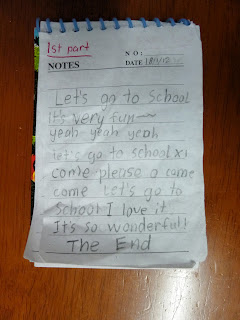 1st part
NO:
NOTES DATE
Let's go to School
It's very fun~~
yeah yeah yeah
let's go to school x1
come please a come
come Let's go to
school I love it!
It's so wonderful!
The End